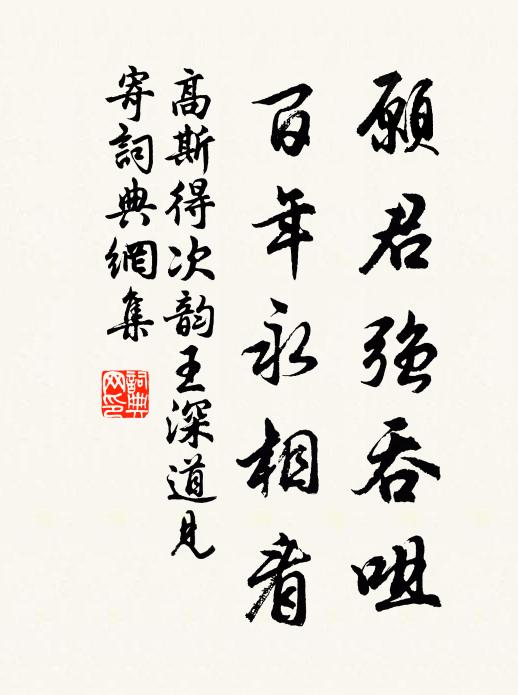 願君強吞咀
百年永相看
高斯得次韵王深道見
寄詞典網集
詞典网印